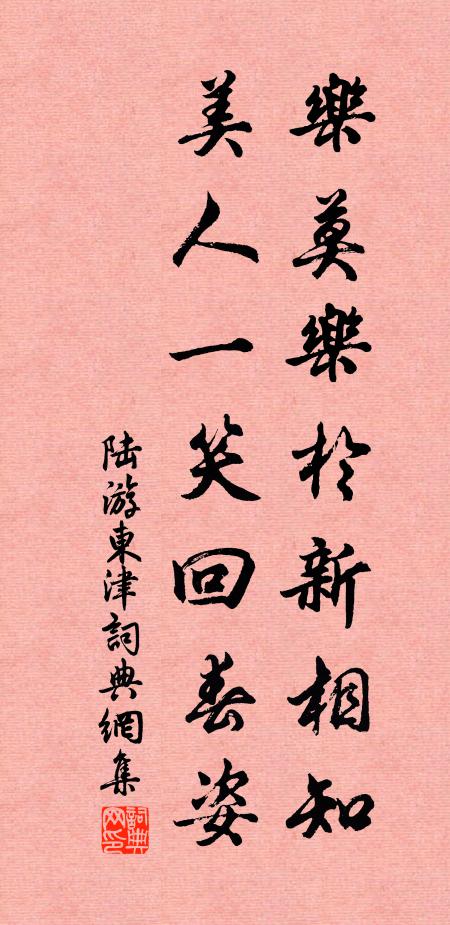 樂莫樂於新相知
美人一笑回春姿
陆游東津詞典網集
詞典网印